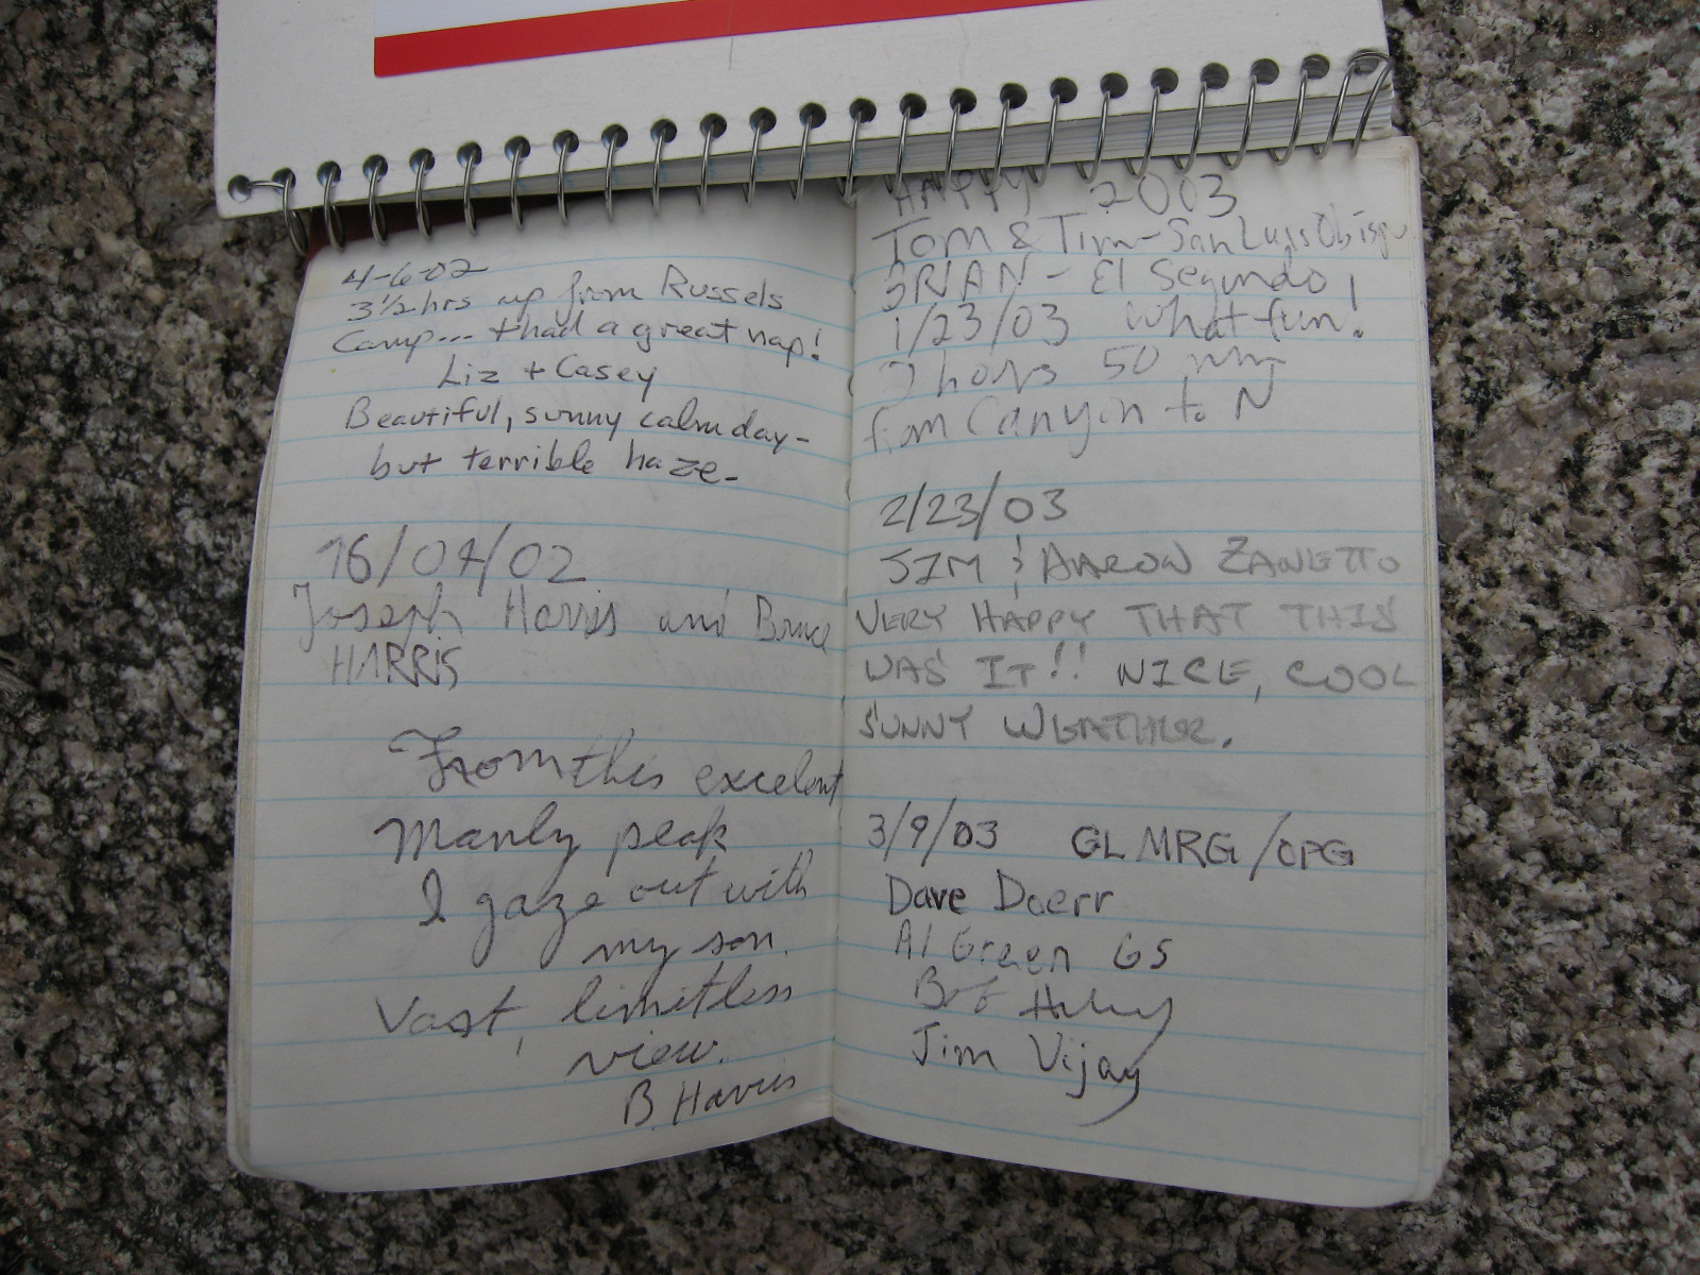 4-6-02
3½ hrs up from Russels
Camp... + had a great nap!
Liz + Casey
Beautiful, sunny calm day-
but terrible haze.
16/04/02
Joseph Harris and Bruce
HARRIS
From this excelent
Manly peak
I gaze out with
my son.
Vast, limitless
view.
B. Harris
HAPPY 2003
Tom & Tim - San Luis Obispo
BRIAN - El Segundo
1/23/03 What fun!
50
from Canyon to N
2/23/03
JIM & AARON ZANETTO
VERY HAPPY THAT THIS
WAS IT!! NICE, COOL
SUNNY WEATHER.
3/9/03 GLMRG/CPG
Dave Doerr
Al Green GS
Bob
Jim Vijay